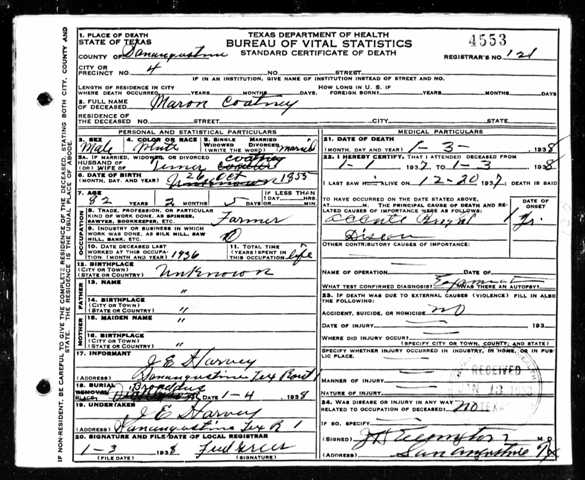 TEXAS DEPARTMENT OF HEALTH
BUREAU OF VITAL STATISTICS
STANDARD CERTIFICATE OF DEATH
4553
REGISTRAR'S NO. 121
1. PLACE OF DEATH
STATE OF TEXAS
COUNTY OF Sanaugustine
CITY OR
PRECINCT NO. 4 NO. STREET
IF IN AN INSTITUTION, GIVE NAME OF INSTITUTION INSTEAD OF STREET AND NO.
LENGTH OF RESIDENCE IN CITY
WHERE DEATH OCCURRED YEARS MONTHS DAYS. HOW LONG IN U. S. IF FOREIGN BORN? YEARS MONTHS DAYS
2. FULL NAME
OF DECEASED Maron Coatney
RESIDENCE OF
THE DECEASED NO. STREET CITY STATE
PERSONAL AND STATISTICAL PARTICULARS
3. SEX Male
4. COLOR OR RACE White
5. SINGLE MARRIED WIDOWED DIVORCED (WRITE) married
5A. IF MARRIED, WIDOWED, OR DIVORCED
HUSBAND OF
OR WIFE OF Coatney
6. DATE OF BIRTH
(MONTH, DAY, AND YEAR) 26 Oct 1855
7. AGE YEARS MONTHS DAYS IF LESS THAN 1 DAY
82 2 5 HOURS MIN
OCCUPATION
8. TRADE, PROFESSION, OR PARTICULAR
KIND OF WORK DONE, AS SPINNER,
SAWYER, BOOKKEEPER, ETC. Farmer
9. INDUSTRY OR BUSINESS IN WHICH
WORK WAS DONE, AS SILK MILL, SAW
MILL, BANK, ETC.
10. DATE DECEASED LAST
WORKED AT THIS OCCUPATION (MONTH AND YEAR) 1936
11. TOTAL TIME (YEARS) IN
THIS OCCUPATION life
12. BIRTHPLACE
(CITY OR TOWN)
(STATE OR COUNTRY) Unknown
FATHER
13. NAME "
14. BIRTHPLACE
(CITY OR TOWN)
(STATE OR COUNTRY) "
MOTHER
15. MAIDEN NAME "
16. BIRTHPLACE
(CITY OR TOWN)
(STATE OR COUNTRY) "
17. INFORMANT J E Harvey
(ADDRESS) Sanaugustine Tex Rout 1
18. BURIAL
REMOVAL
PLACE Broaddus DATE 1-4 1938
19. UNDERTAKER J E Harvey
(ADDRESS) Sanaugustine Tex R 1
20. SIGNATURE AND FILE DATE OF LOCAL REGISTRAR
1-3 1938
(FILE DATE) (SIGNATURE)
MEDICAL PARTICULARS
21. DATE OF DEATH
(MONTH, DAY, AND YEAR) 1-3- 1938
22. I HEREBY CERTIFY THAT I ATTENDED DECEASED FROM
1-1 1937 TO 1-3 1938
I LAST SAW ALIVE ON 12-20 1937 DEATH IS SAID
TO HAVE OCCURRED ON THE DATE STATED ABOVE
AT M. THE PRINCIPAL CAUSE OF DEATH AND RELATED CAUSES OF IMPORTANCE WERE AS FOLLOWS:
DATE OF ONSET
1 Yr.
OTHER CONTRIBUTORY CAUSES OF IMPORTANCE:
NAME OF OPERATION DATE OF
WHAT TEST CONFIRMED DIAGNOSIS? WAS THERE AN AUTOPSY?
23. IF DEATH WAS DUE TO EXTERNAL CAUSES (VIOLENCE) FILL IN ALSO
THE FOLLOWING:
ACCIDENT, SUICIDE, OR HOMICIDE? NO
DATE OF INJURY 193
WHERE DID INJURY OCCUR?
(SPECIFY CITY OR TOWN, COUNTY, AND STATE)
SPECIFY WHETHER INJURY OCCURRED IN INDUSTRY, IN HOME, OR IN PUBLIC PLACE.
MANNER OF INJURY RECEIVED
NATURE OF INJURY
24. WAS DISEASE OR INJURY IN ANY WAY
RELATED TO OCCUPATION OF DECEASED? NO
IF SO, SPECIFY
(SIGNED) M D
(ADDRESS) San Augustine Tex